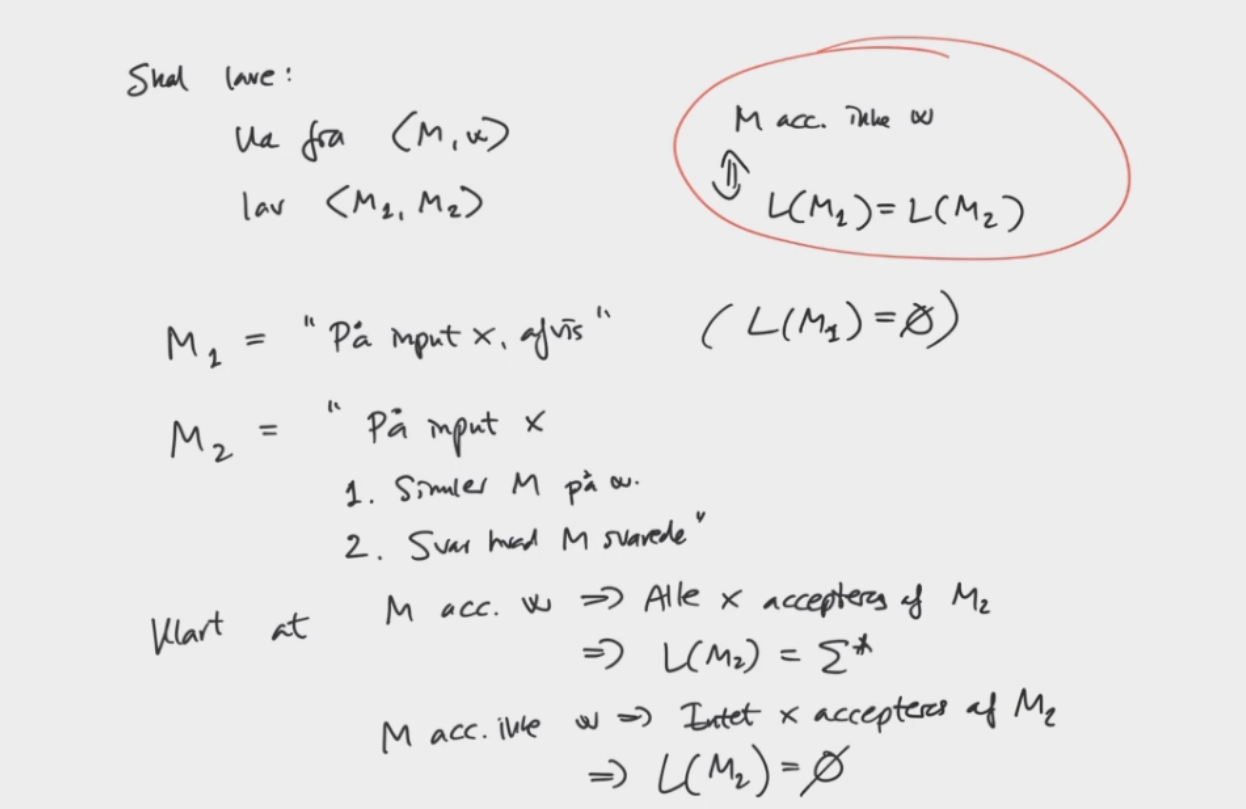 Skal lave:
Ud fra ⟨M, w⟩
lav ⟨M₁, M₂⟩
M acc. ikke w
⇕
L(M₁) = L(M₂)
M₁ = "På input x, afvis" (L(M₁) = ∅)
M₂ = "På input x
1. Simuler M på w.
2. Svar hvad M svarede"
Klart at M acc. w ⇒ Alle x accepteres af M₂
⇒ L(M₂) = Σ*
M acc. ikke w ⇒ Intet x accepteres af M₂
⇒ L(M₂) = ∅